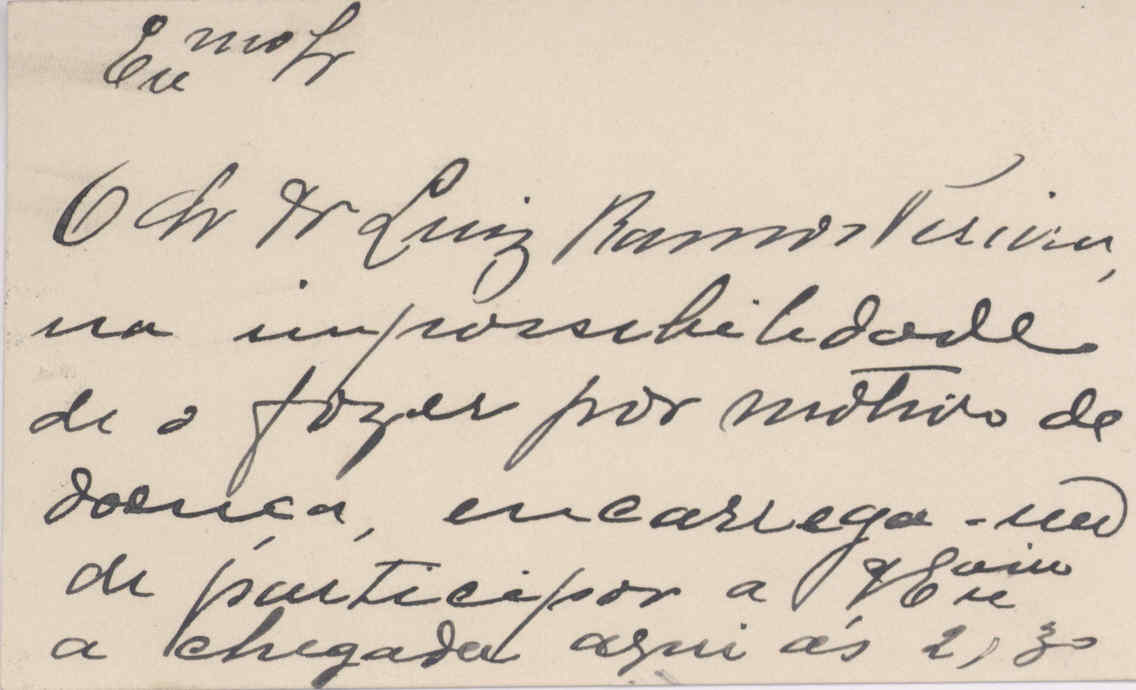 Exmo Sr
O Sr Dr Luiz Ramos Pereira,
na impossibilidade
de o fazer por motivo de
doença, encarrega-me
de participar a V Excia
a chegada aqui ás 2,30